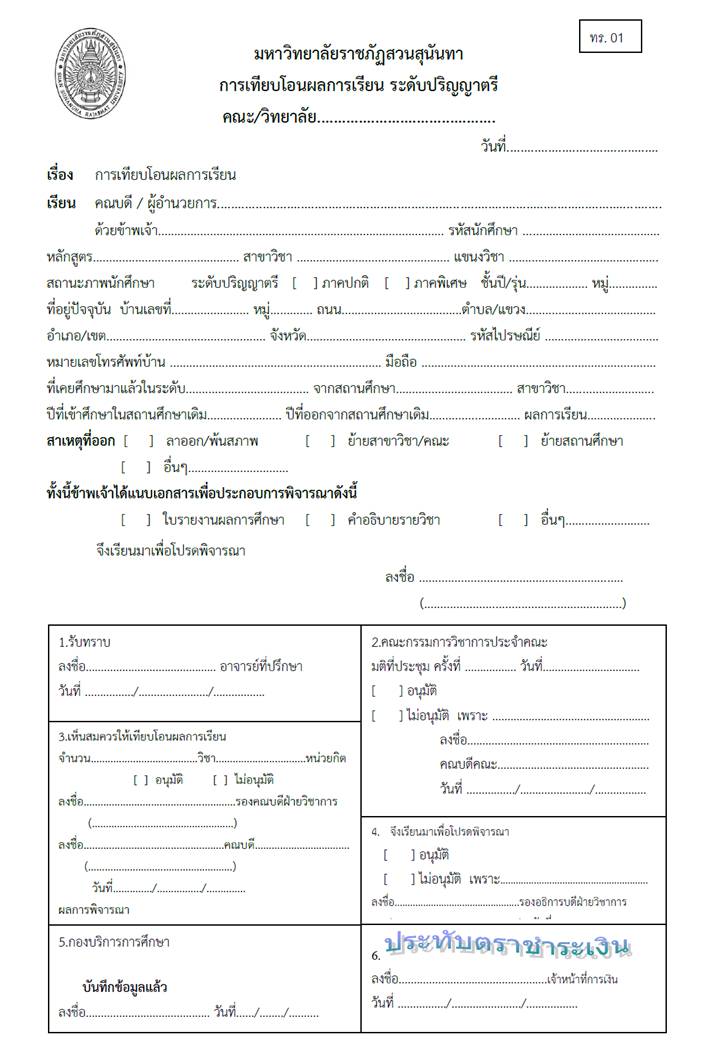 ทร. 01
มหาวิทยาลัยราชภัฏสวนสุนันทา
การเทียบโอนผลการเรียน ระดับปริญญาตรี
คณะ/วิทยาลัย...........................................
วันที่..........................................
เรื่อง การเทียบโอนผลการเรียน
เรียน คณบดี / ผู้อำนวยการ..........................................................................
ด้วยข้าพเจ้า.................................................................. รหัสนักศึกษา ................................
หลักสูตร..................................... สาขาวิชา ....................................... แขนงวิชา ......................................
สถานะภาพนักศึกษา ระดับปริญญาตรี [ ] ภาคปกติ [ ] ภาคพิเศษ ชั้นปี/รุ่น................. หมู่..............
ที่อยู่ปัจจุบัน บ้านเลขที่...................... หมู่............ ถนน.................................ตำบล/แขวง....................................
อำเภอ/เขต............................................ จังหวัด............................................ รหัสไปรษณีย์ ................................
หมายเลขโทรศัพท์บ้าน ........................................................... มือถือ ..................................................................
ที่เคยศึกษามาแล้วในระดับ.................................. จากสถานศึกษา................................ สาขาวิชา.........................
ปีที่เข้าศึกษาในสถานศึกษาเดิม..................... ปีที่ออกจากสถานศึกษาเดิม......................... ผลการเรียน...................
สาเหตุที่ออก [ ] ลาออก/พ้นสภาพ [ ] ย้ายสาขาวิชา/คณะ [ ] ย้ายสถานศึกษา
[ ] อื่นๆ............................
ทั้งนี้ข้าพเจ้าได้แนบเอกสารเพื่อประกอบการพิจารณาดังนี้
[ ] ใบรายงานผลการศึกษา [ ] คำอธิบายรายวิชา [ ] อื่นๆ........................
จึงเรียนมาเพื่อโปรดพิจารณา
ลงชื่อ .........................................................
(.......................................................)
1.รับทราบ
ลงชื่อ.......................................... อาจารย์ที่ปรึกษา
วันที่ .............../......................./................
2.คณะกรรมการวิชาการประจำคณะ
มติที่ประชุม ครั้งที่ ................ วันที่..............................
[ ] อนุมัติ
[ ] ไม่อนุมัติ เพราะ ................................................
ลงชื่อ.......................................................
คณบดีคณะ..............................................
วันที่ .............../......................./................
3.เห็นสมควรให้เทียบโอนผลการเรียน
จำนวน....................................วิชา..............................หน่วยกิต
[ ] อนุมัติ [ ] ไม่อนุมัติ
ลงชื่อ...................................................รองคณบดีฝ่ายวิชาการ
(................................................)
ลงชื่อ...............................................คณบดี................................
(................................................)
วันที่............./.............../.............
ผลการพิจารณา
4. จึงเรียนมาเพื่อโปรดพิจารณา
[ ] อนุมัติ
[ ] ไม่อนุมัติ เพราะ..................................................
ลงชื่อ..............................................รองอธิการบดีฝ่ายวิชาการ
5.กองบริการการศึกษา
บันทึกข้อมูลแล้ว
ลงชื่อ.......................................... วันที่....../......../..........
6. ประทับตราชำระเงิน
ลงชื่อ................................................เจ้าหน้าที่การเงิน
วันที่ ................/......................../.................